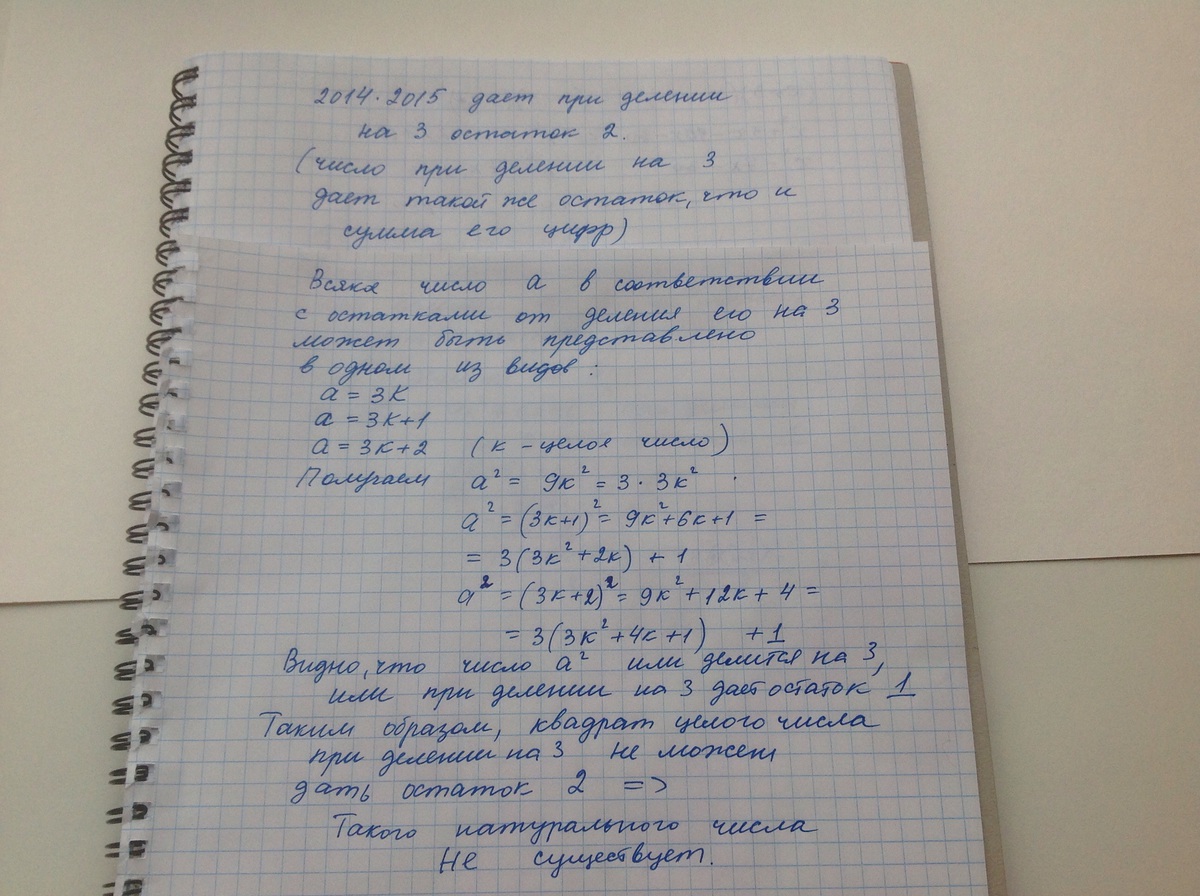 2014·2015 дает при делении
на 3 остаток 2.
(число при делении на 3
дает такой же остаток, что и
сумма его цифр)
Всякое число a в соответствии
с остатками от деления его на 3
может быть представлено
в одном из видов:
a = 3k
a = 3k+1
a = 3k+2 (k - целое число)
Получаем a² = 9k² = 3·3k²
a² = (3k+1)² = 9k²+6k+1 =
= 3(3k²+2k) + 1
a² = (3k+2)² = 9k²+12k+4 =
= 3(3k²+4k+1) +1
Видно, что число a² или делится на 3,
или при делении на 3 дает остаток 1
Таким образом, квадрат целого числа
при делении на 3 не может
дать остаток 2 =>
Такого натурального числа
Не существует.